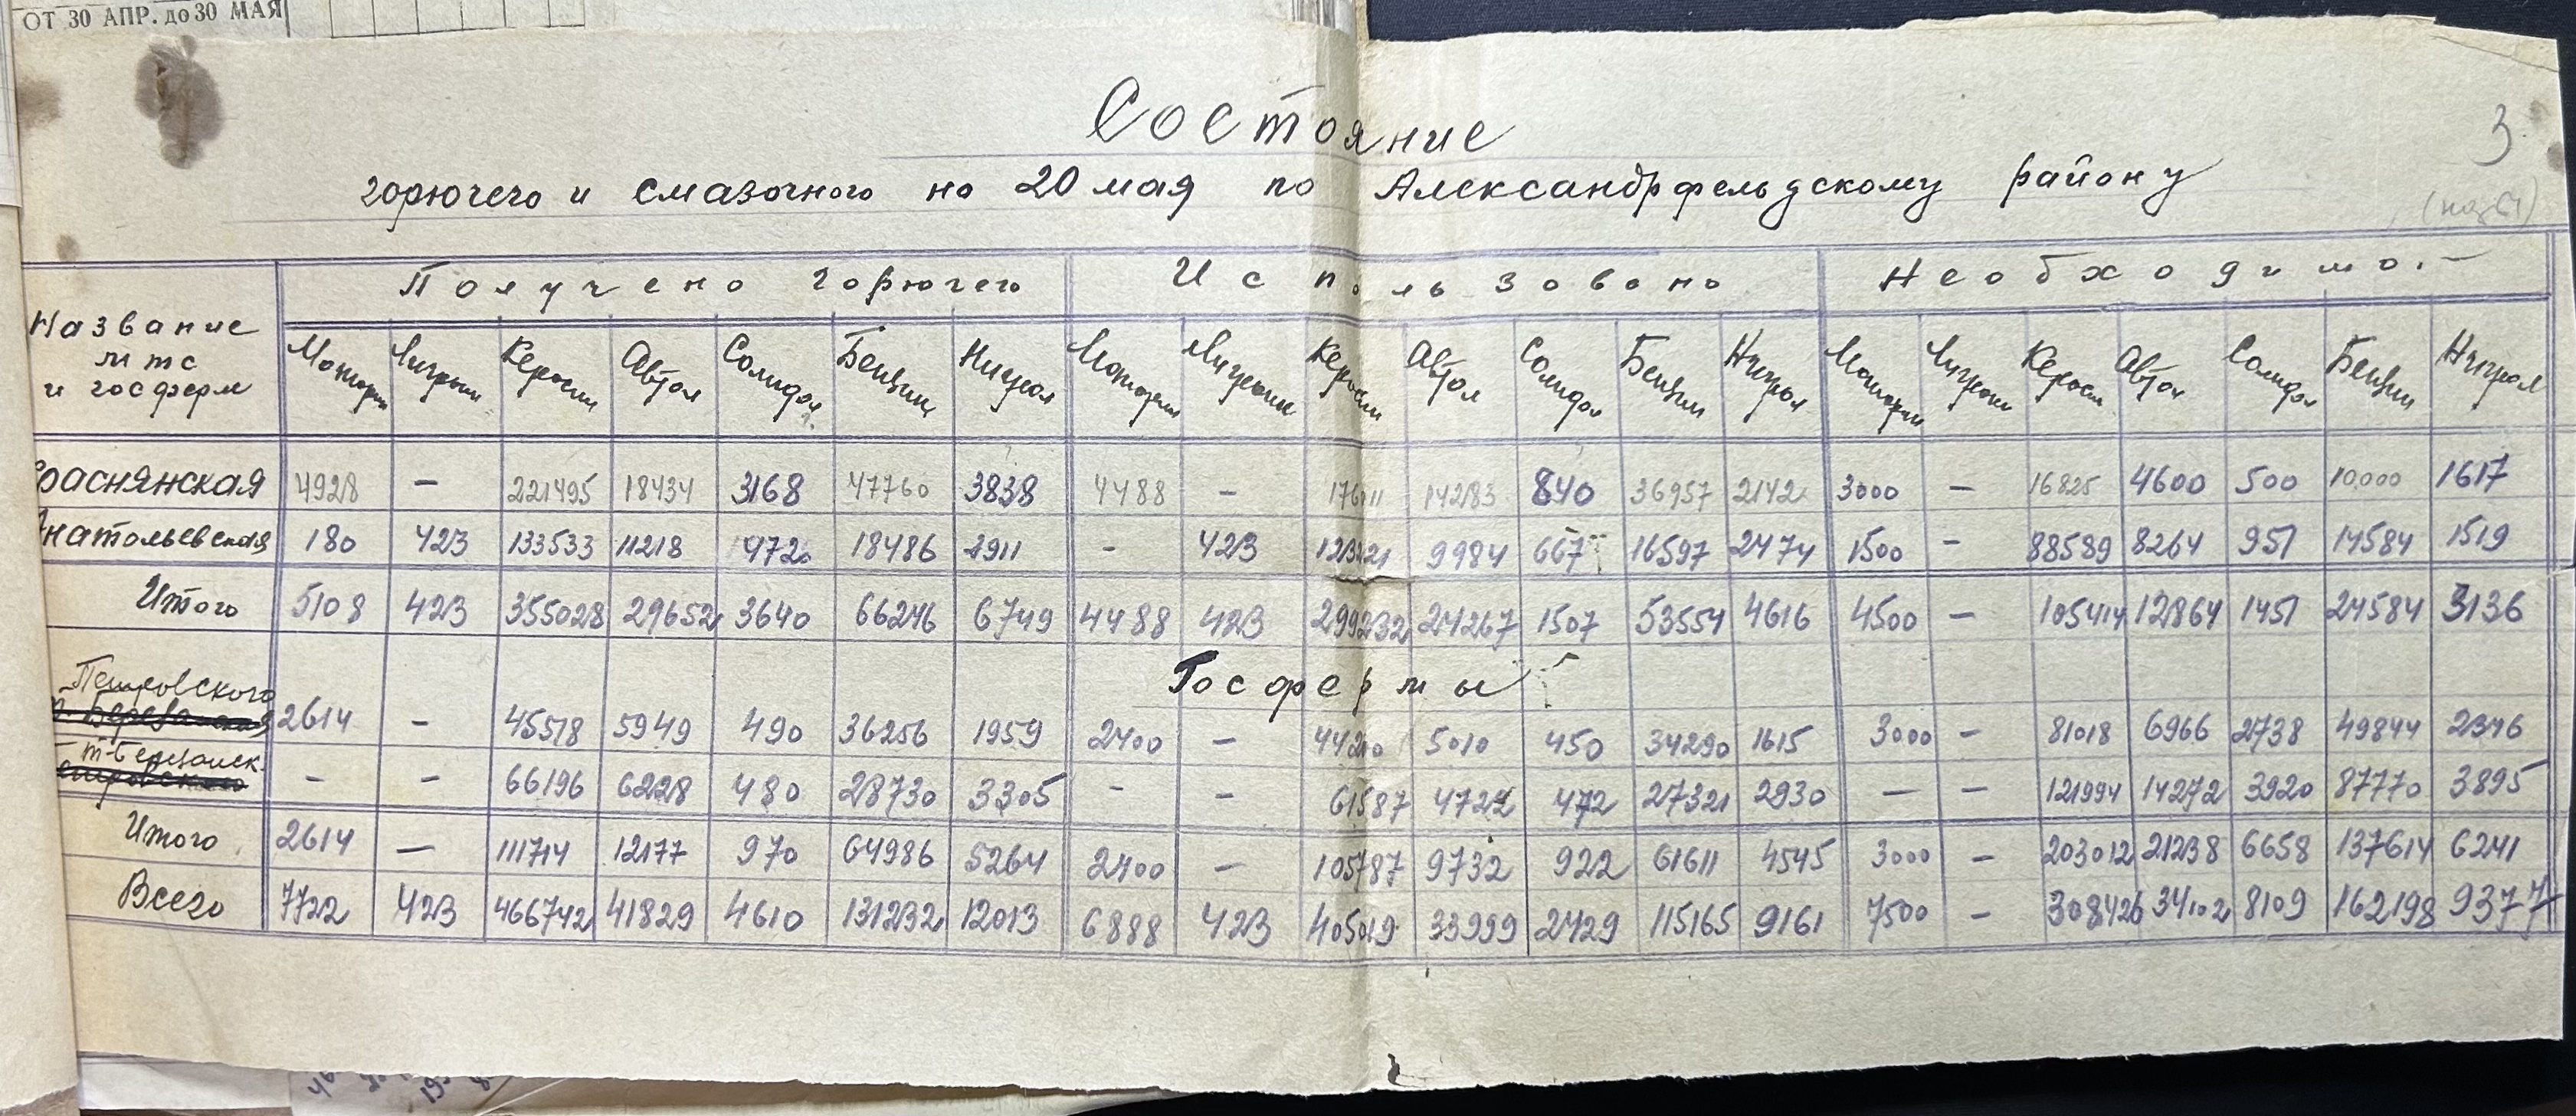 ОТ 30 АПР. до 30 МАЯ
3
Состояние
горючего и смазочного на 20 мая по Александрфельдскому району
Название мтс и госферм | Получено горючего | Использовано | Необходимо.-
Моторин Лигроин Керосин Автол Солидол Бензин Нигрол | Моторин Лигроин Керосин Автол Солидол Бензин Нигрол | Моторин Лигроин Керосин Автол Солидол Бензин Нигрол
раснянская 4928 – 221495 18434 3168 47760 3838 4488 – 176011 14283 840 36957 2142 3000 – 16825 4600 500 10,000 1617
натольевская 180 423 133533 11218 472 18486 2911 - 423 123221 9984 667 16597 2474 1500 – 88589 8264 951 14584 1519
Итого 5108 423 355028 29652 3640 66246 6749 4488 423 299232 24267 1507 53554 4616 4500 – 105414 12864 1451 24584 3136
Госфермы
Петровского 2614 – 45518 5949 490 36256 1959 2400 – 44200 5010 450 34290 1615 3000 – 81018 6966 2738 49844 2346
– – 66196 6228 480 28730 3305 - - 61587 4722 472 27321 2930 — – 121994 14272 3920 87770 3895
Итого 2614 — 111714 12177 970 64986 5264 2400 – 105787 9732 922 61611 4545 3000 – 203012 21238 6658 137614 6241
Всего 7722 423 466742 41829 4610 131232 12013 6888 423 405019 33999 2429 115165 9161 7500 – 308426 34102 8109 162198 9377